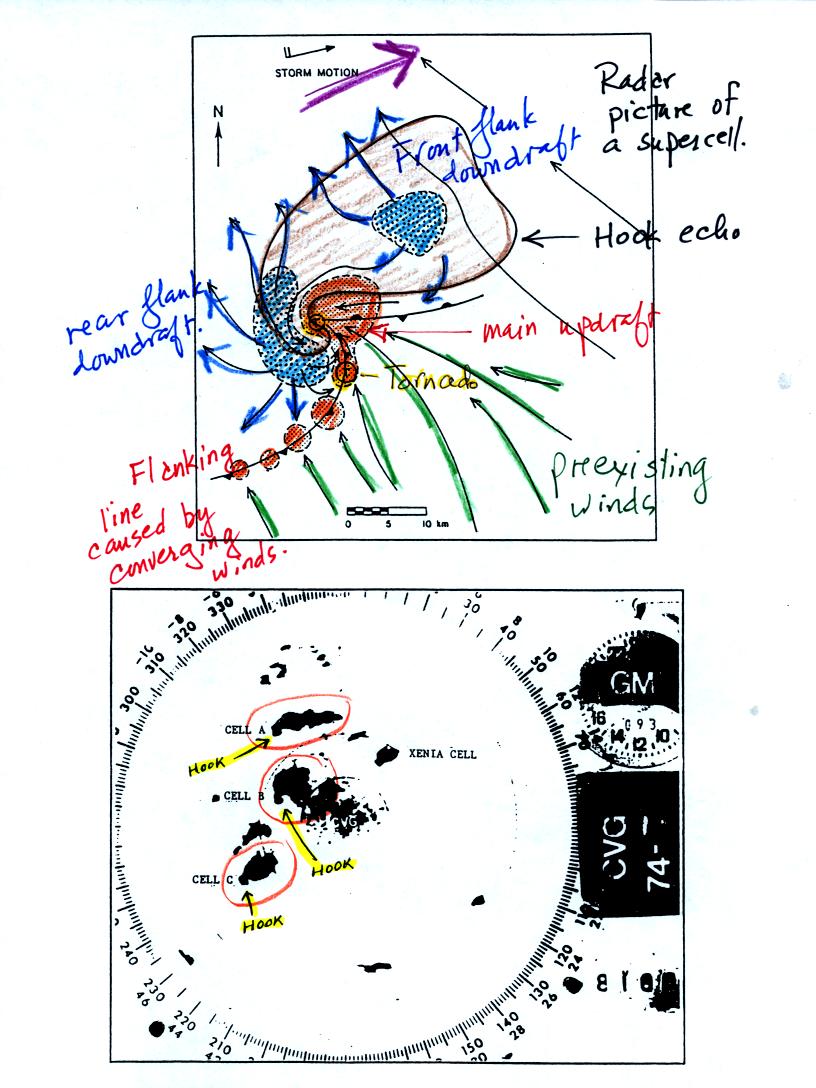 STORM MOTION
N
Radar
picture of
a supercell.
Front flank
downdraft
Hook echo
rear flank
downdraft.
main updraft
Tornado
Flanking
line
caused by
converging
winds.
preexisting
winds
0 5 10 km
330
320
310
300
-8
-16
30
8
40
10
50
60
GM
16
14
12
10
G 9 3
CELL A
HOOK
XENIA CELL
CELL B
CVG
HOOK
CELL C
HOOK
CVG
74-
240
230
46
220
44
210
150
140
28
130
26
120
24